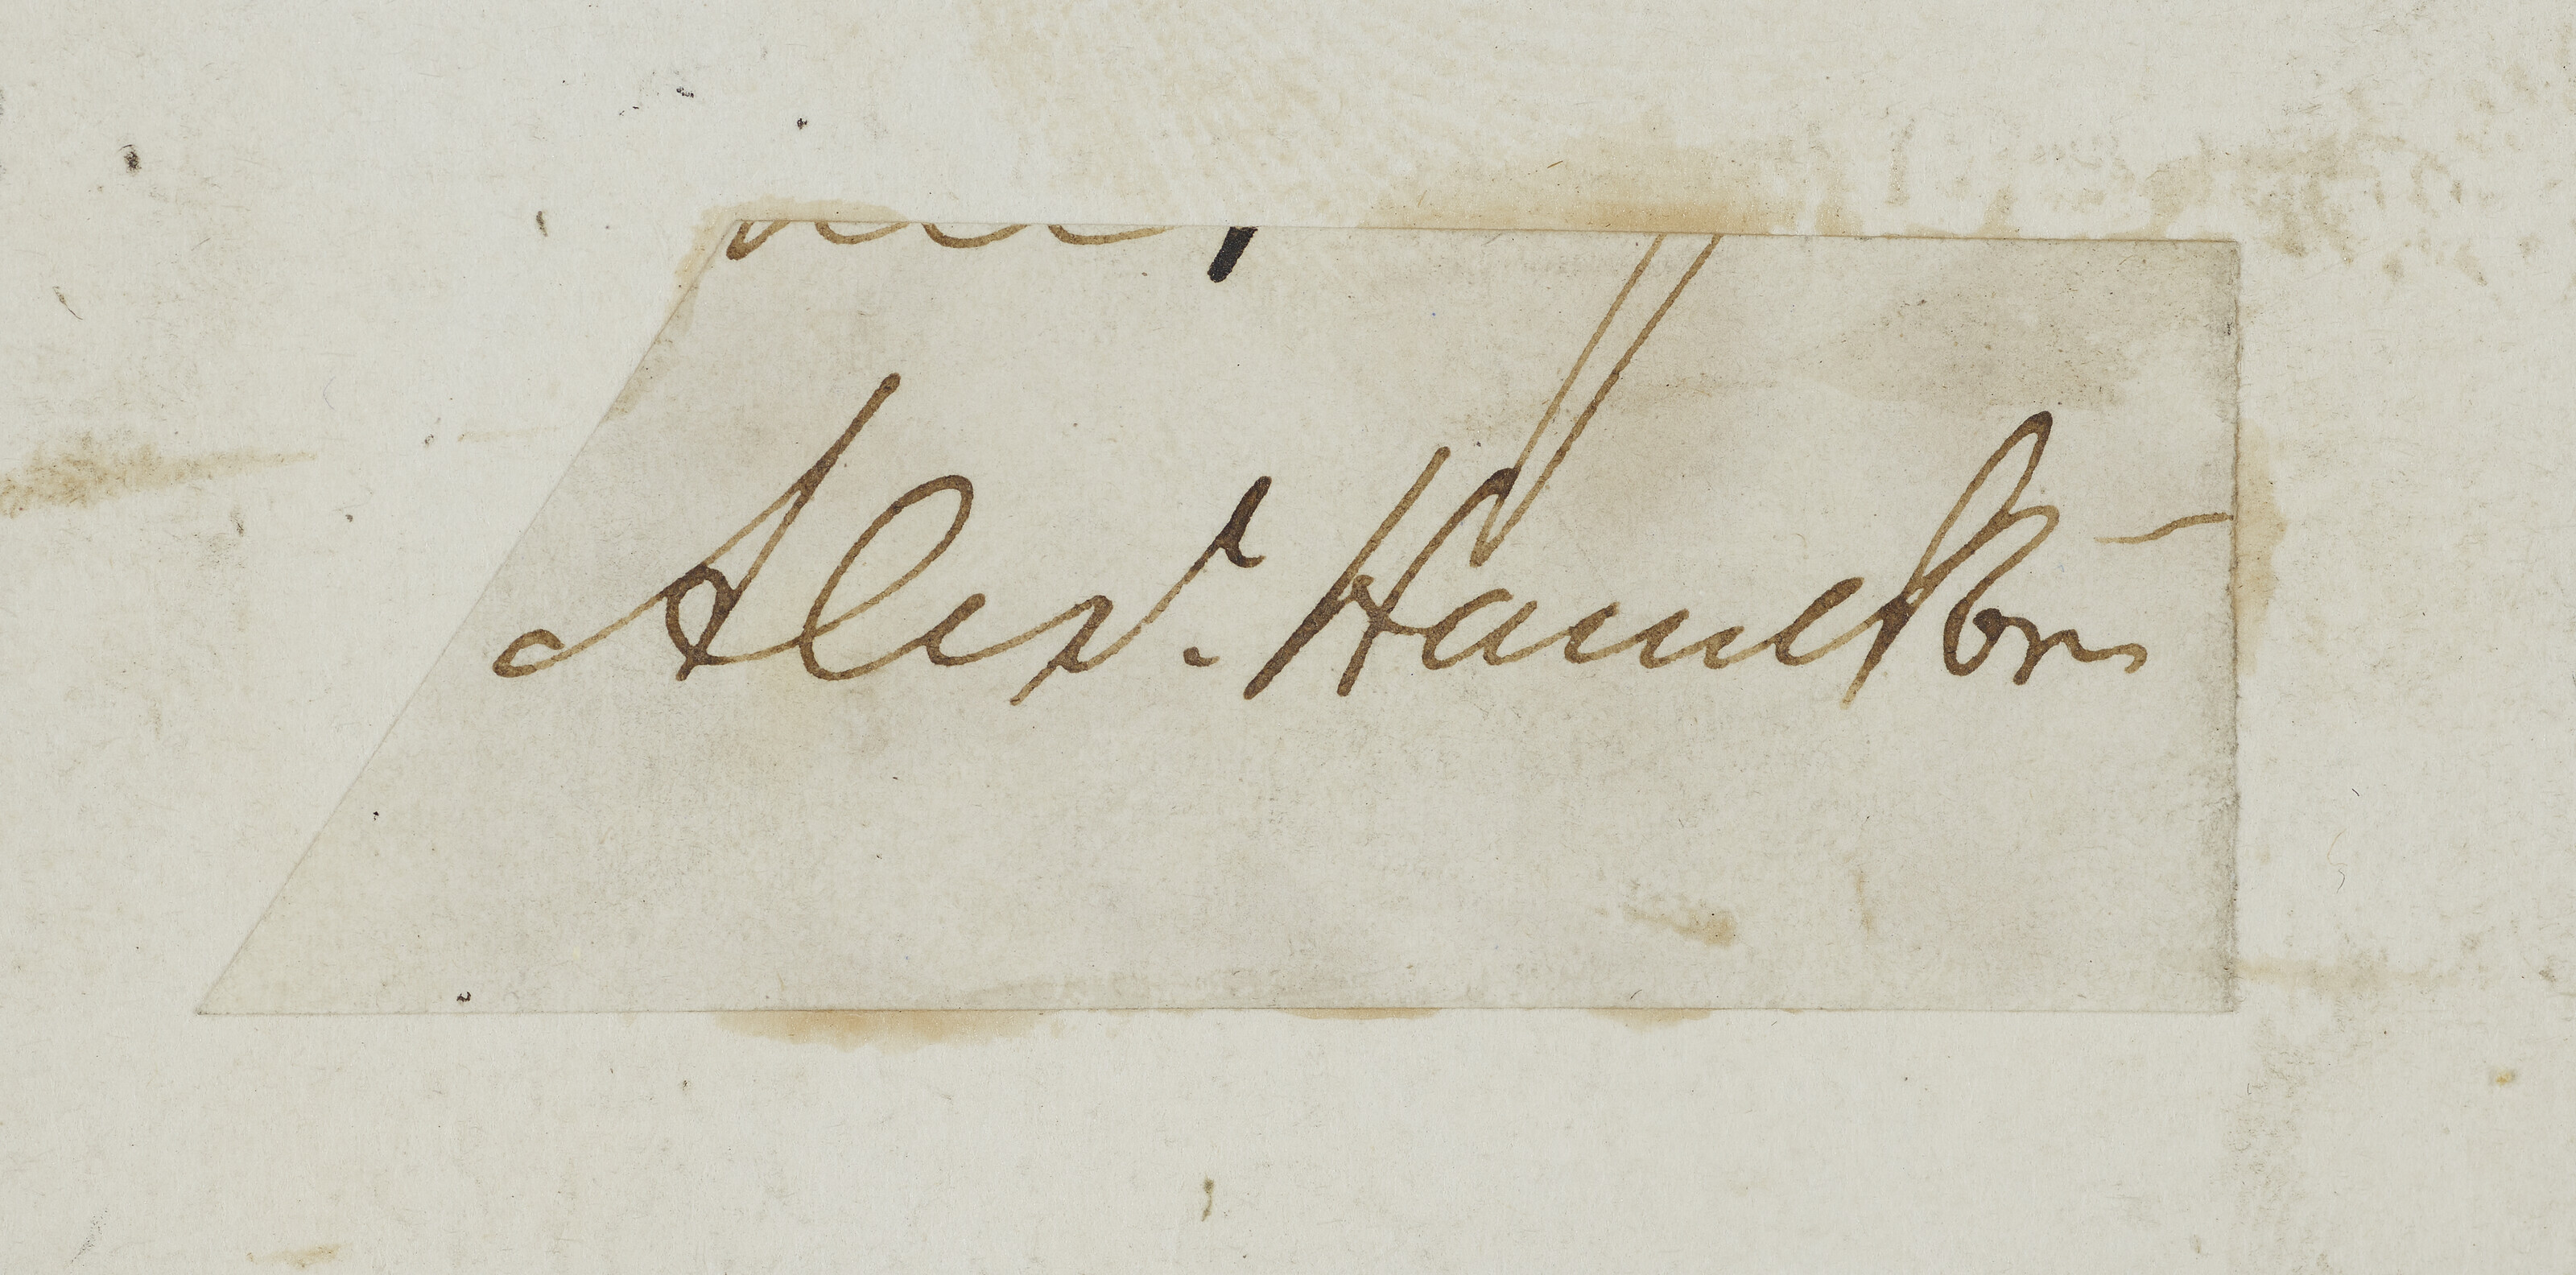 Alexr. Hamilton